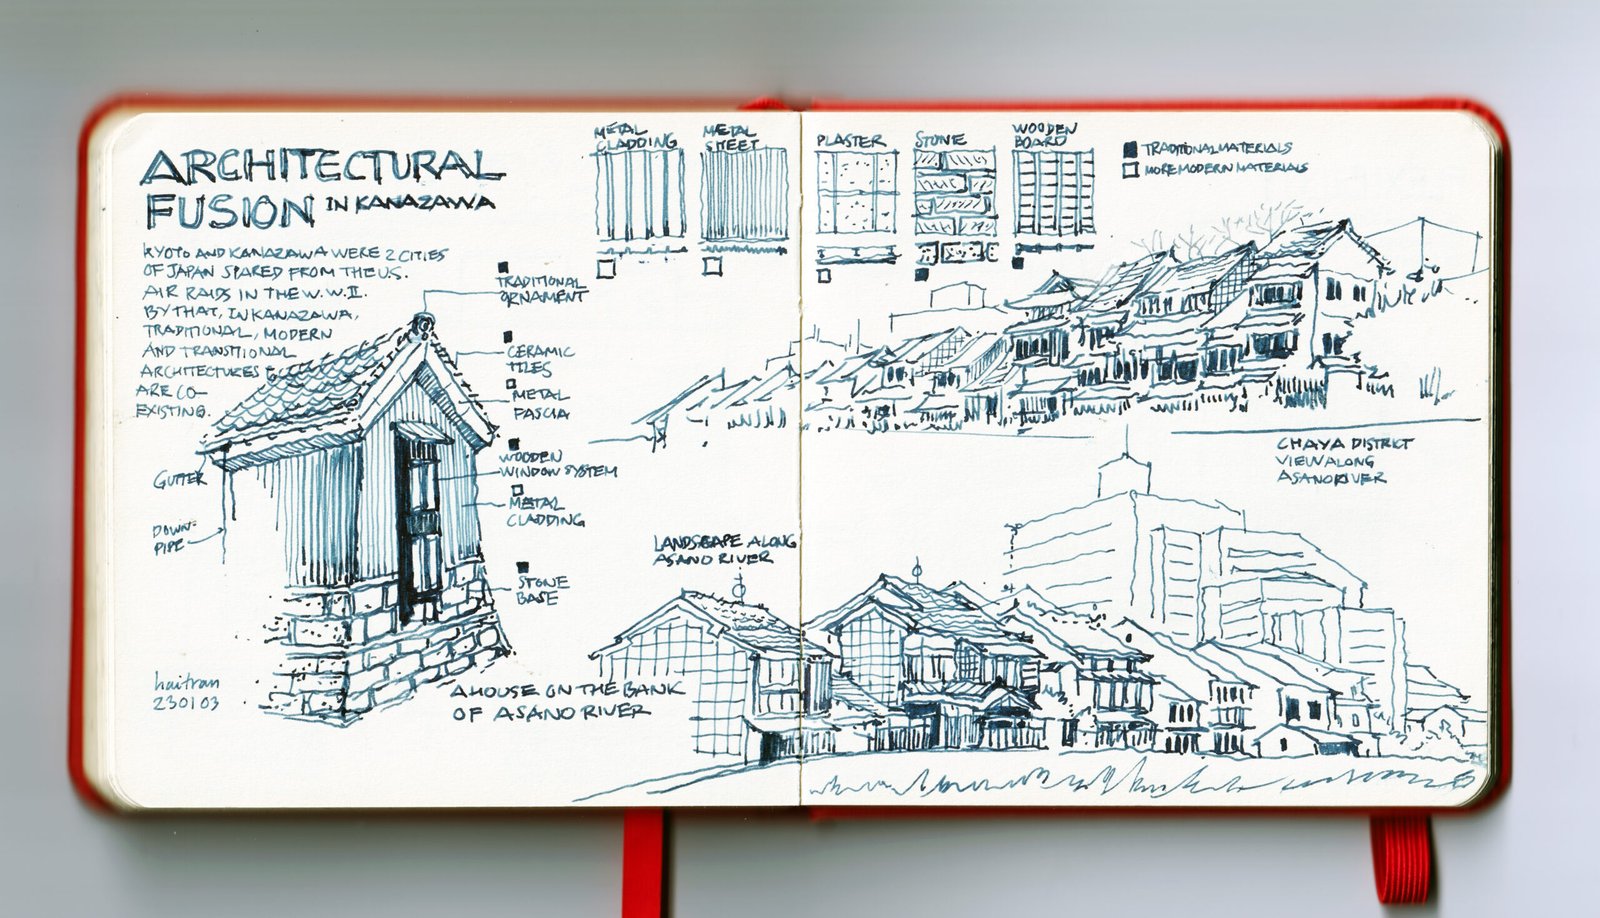 ARCHITECTURAL
FUSION IN KANAZAWA
KYOTO AND KANAZAWA WERE 2 CITIES
OF JAPAN SPARED FROM THE U.S.
AIR RAIDS IN THE W.W.II.
BY THAT, IN KANAZAWA,
TRADITIONAL, MODERN
AND TRANSITIONAL
ARCHITECTURES
ARE CO-
EXISTING.
TRADITIONAL
ORNAMENT
CERAMIC
TILES
METAL
FASCIA
WOODEN
WINDOW SYSTEM
METAL
CLADDING
STONE
BASE
GUTTER
DOWN-
PIPE
haitran
230103
A HOUSE ON THE BANK
OF ASANO RIVER
METAL
CLADDING
METAL
SHEET
PLASTER
STONE
WOODEN
BOARD
TRADITIONAL MATERIALS
MORE MODERN MATERIALS
CHAYA DISTRICT
VIEW ALONG
ASANO RIVER
LANDSCAPE ALONG
ASANO RIVER